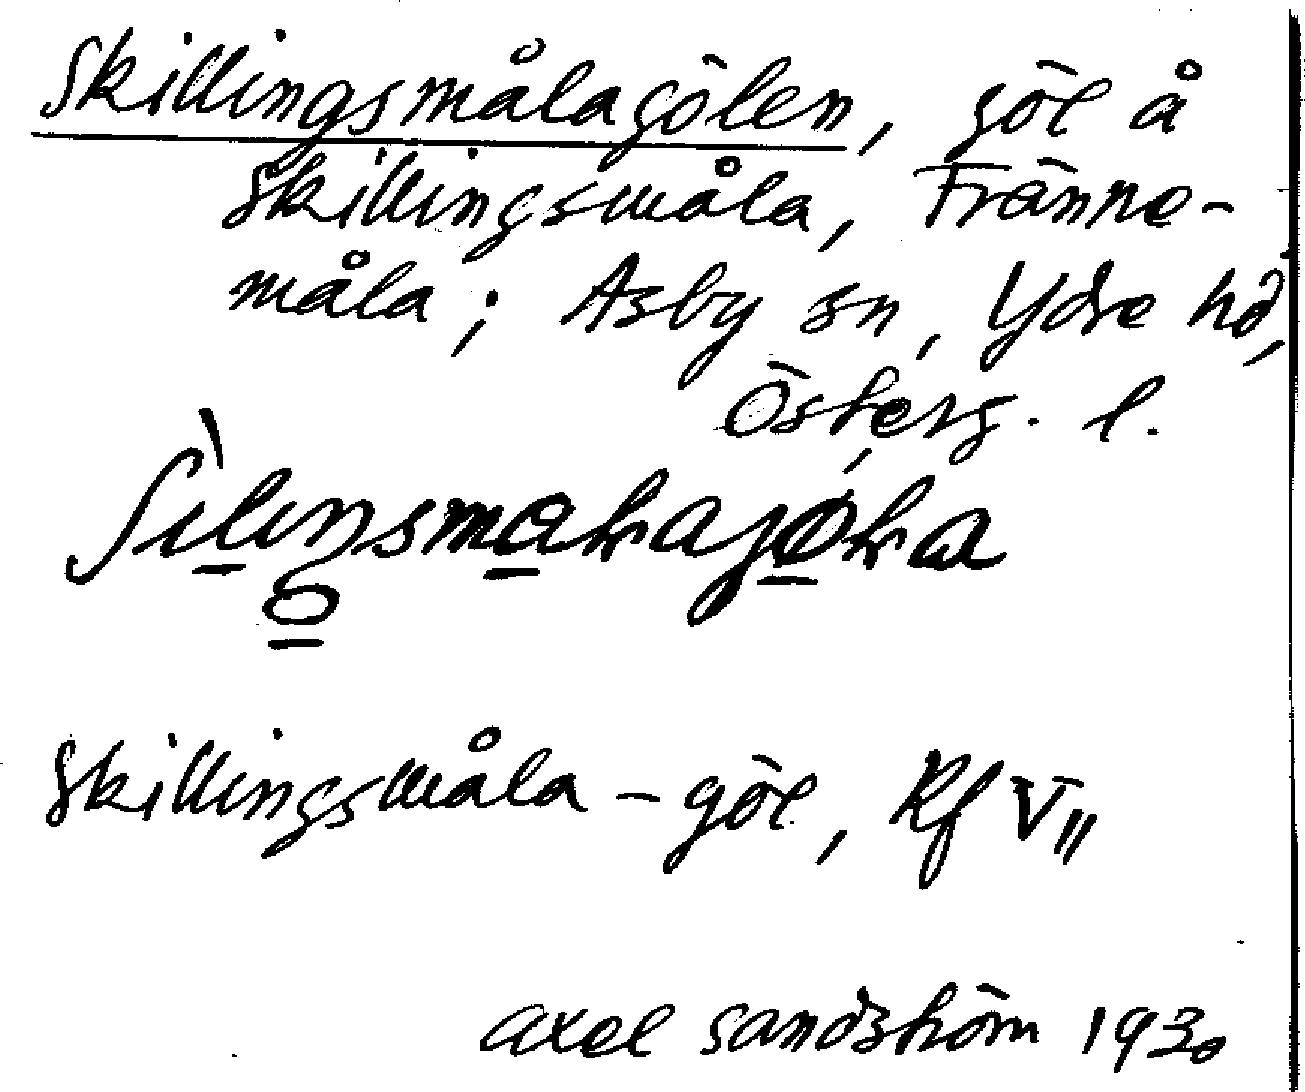 Skillingsmålagölen, göl å
Skillingsmåla, Fränne-
måla; Asby sn, Ydre hd,
Österg. l.
Skillingsmåla - göl, Rf V
Axel Sandström 1930